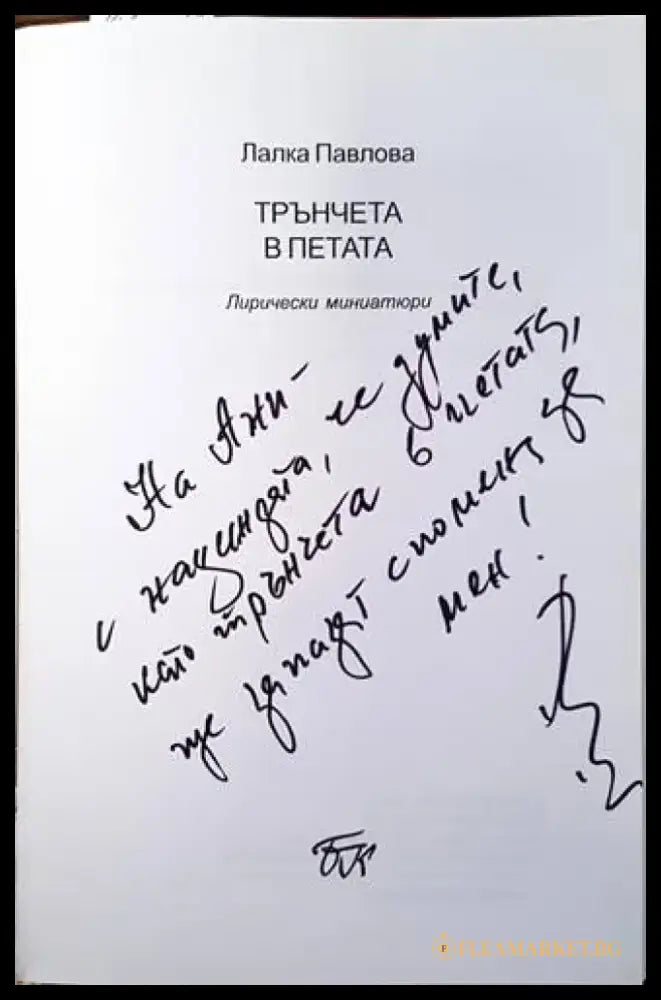 Лалка Павлова
ТРЪНЧЕТА
В ПЕТАТА
Лирически миниатюри
На Ани –
с надеждата, че думите,
като трънчета в петата,
ще запазят спомена за
мен!
FLEAMARKET.BG